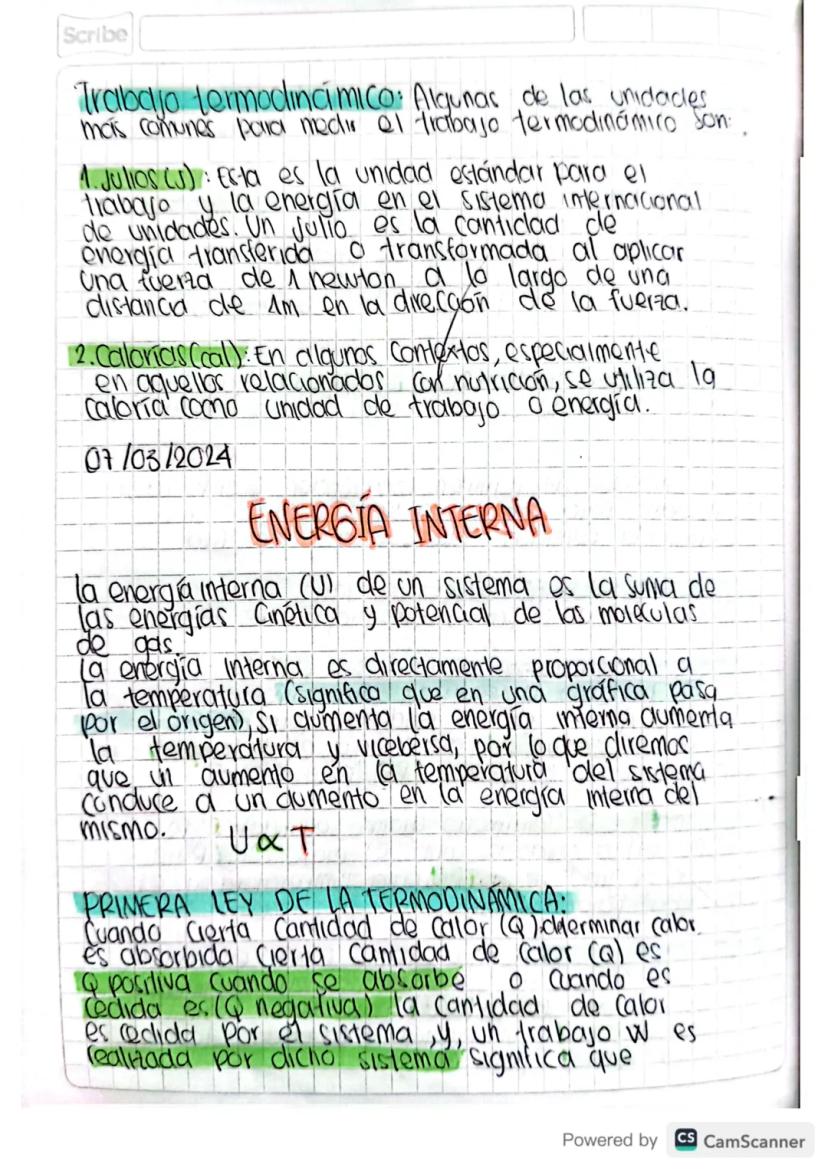 Scribe
Trabajo termodinámico: Algunas de las unidades
más comunes para medir el trabajo termodinámico son:
1. Julios (J): Esta es la unidad estándar para el
trabajo y la energía en el sistema internacional
de unidades. Un julio es la cantidad de
energía transferida o transformada al aplicar
una fuerza de 1 newton a lo largo de una
distancia de 1m en la dirección de la fuerza.
2. Calorías (cal): En algunos contextos, especialmente
en aquellos relacionados con nutrición, se utiliza la
caloría como unidad de trabajo o energía.
07/03/2024
ENERGÍA INTERNA
la energía interna (U) de un sistema es la suma de
las energías cinética y potencial de las moleculas
de gas.
La energía interna es directamente proporcional a
la temperatura (significa que en una gráfica pasa
por el origen), si aumenta la energía interna aumenta
la temperatura y vicebersa, por lo que diremos
que un aumento en la temperatura del sistema
conduce a un aumento en la energía interna del
mismo. U ∝ T
PRIMERA LEY DE LA TERMODINÁMICA:
Cuando cierta cantidad de calor (Q) determinar calor
es absorbida cierta cantidad de calor (Q) es
Q positiva cuando se absorbe o cuando es
cedida es (Q negativa) la cantidad de calor
es cedida por el sistema, y, un trabajo W es
realizada por dicho sistema significa que
Powered by CS CamScanner